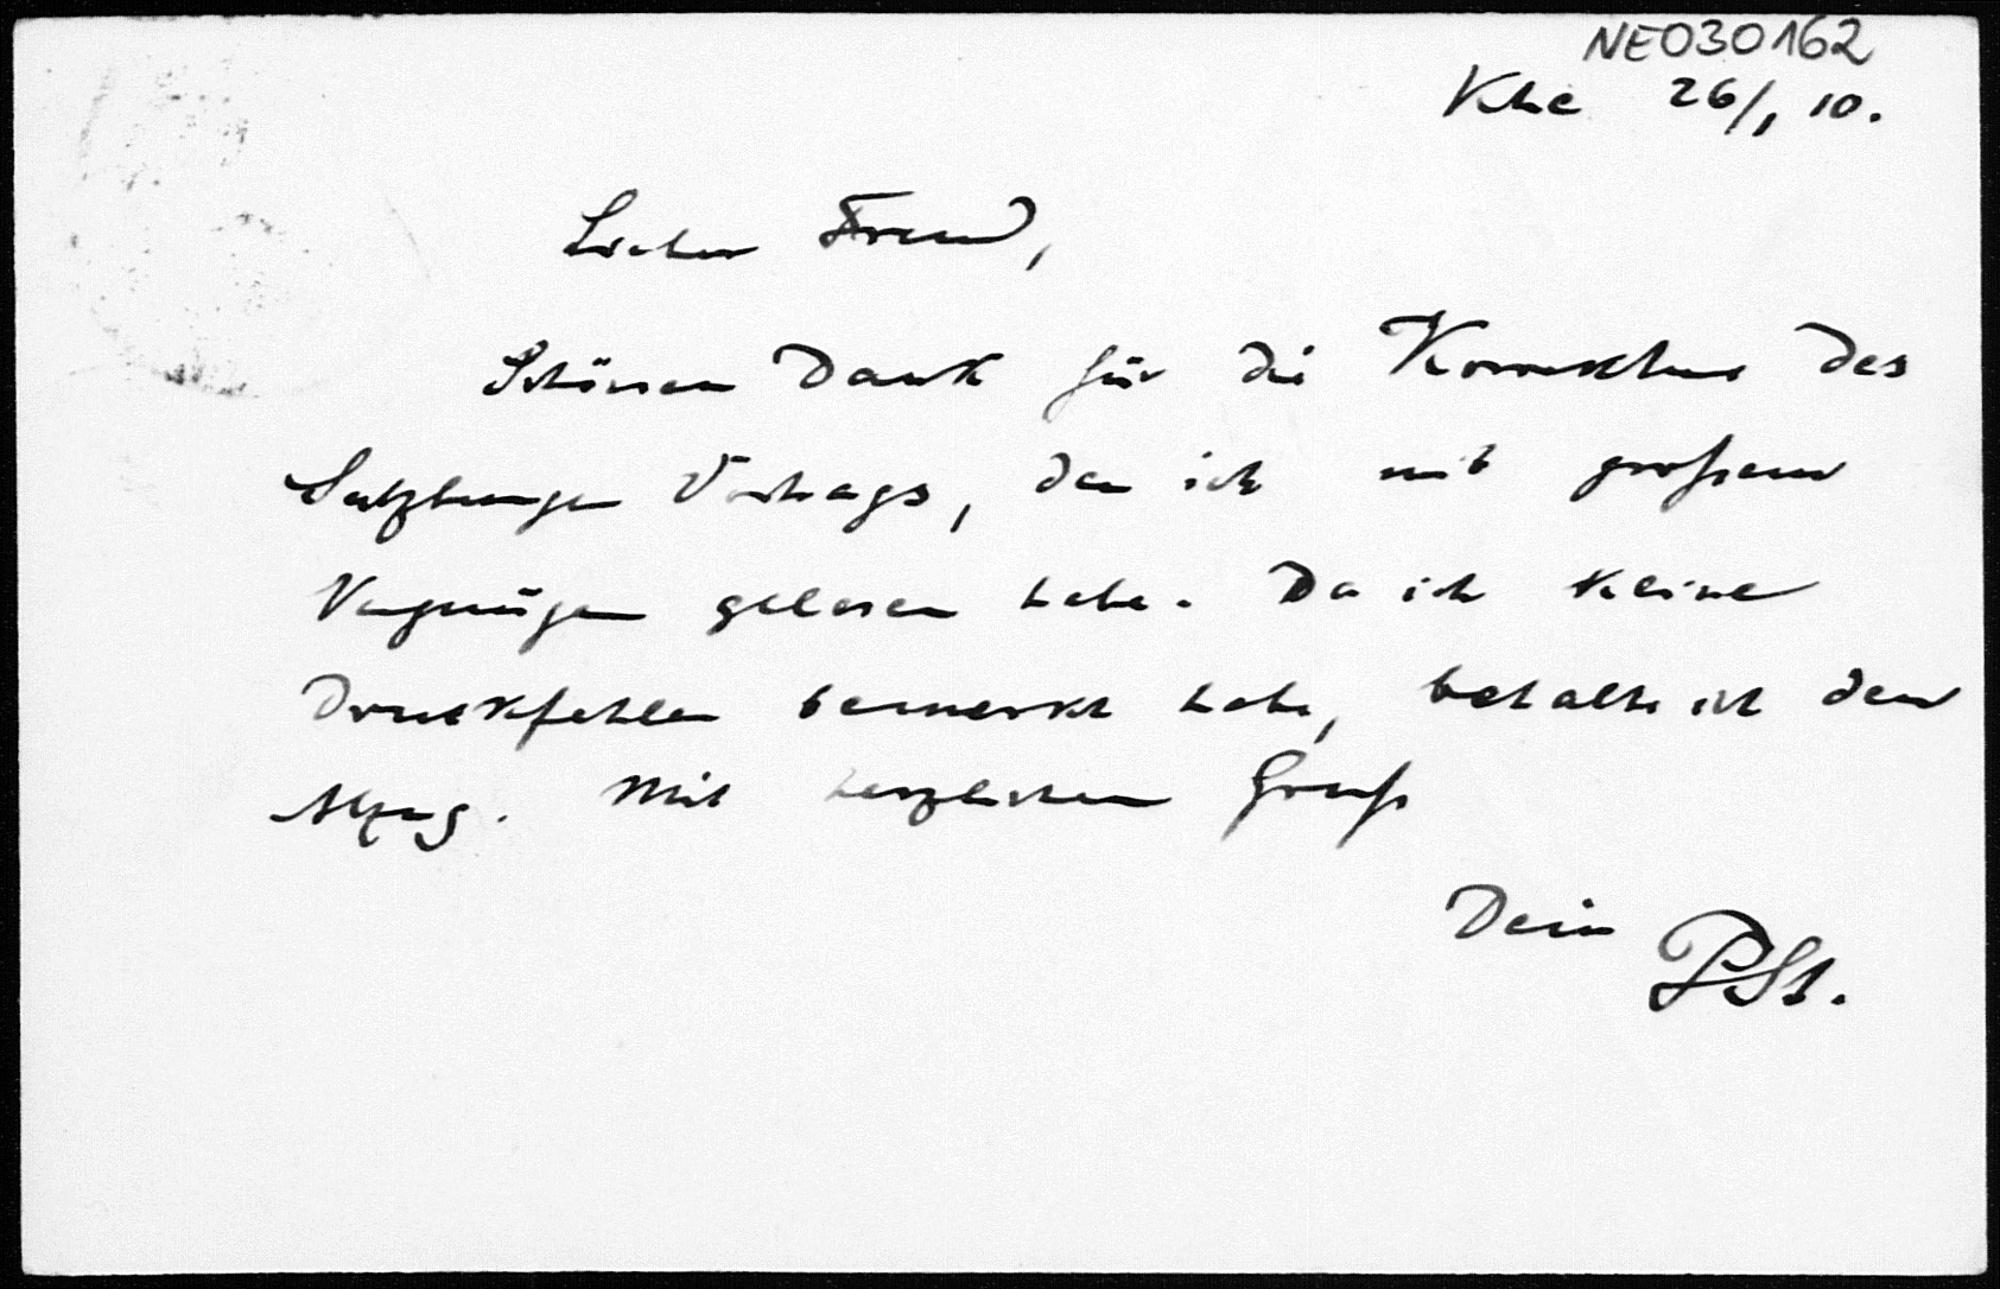 NE030162
Khe 26/1 10.
Lieber Freund,
Schönen Dank für die Korrektur des
Salzburger Vortrags, den ich mit großem
Vergnügen gelesen habe. Da ich keine
Druckfehler bemerkt habe, behalte ich den
Abzug. Mit herzlichem Gruß
Dein
PSt.